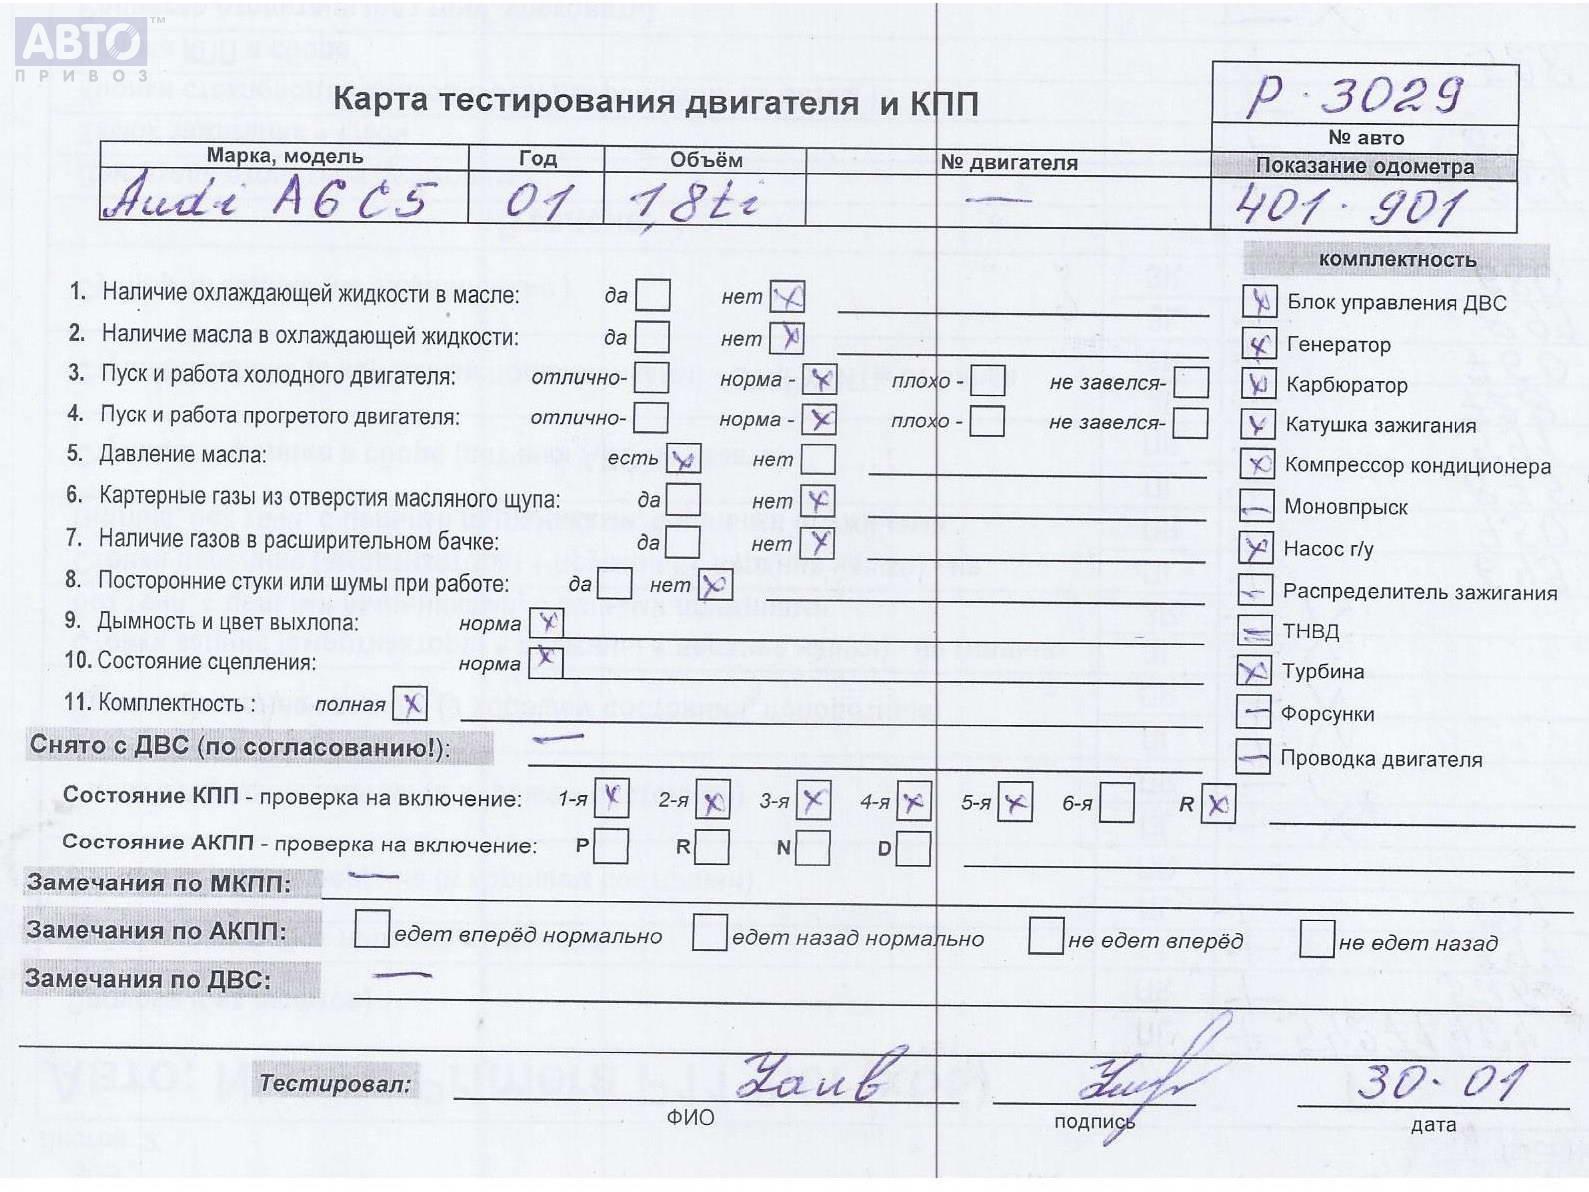 АВТО™
ПРИВОЗ
Карта тестирования двигателя и КПП
Р · 3029
№ авто
Марка, модель Год Объём № двигателя Показание одометра
Audi A6 C5 01 1,8ti — 401 · 901
комплектность
1. Наличие охлаждающей жидкости в масле: да нет X
2. Наличие масла в охлаждающей жидкости: да нет X
3. Пуск и работа холодного двигателя: отлично- норма - X плохо - не завелся-
4. Пуск и работа прогретого двигателя: отлично- норма - X плохо - не завелся-
5. Давление масла: есть X нет
6. Картерные газы из отверстия масляного щупа: да нет X
7. Наличие газов в расширительном бачке: да нет X
8. Посторонние стуки или шумы при работе: да нет X
9. Дымность и цвет выхлопа: норма X
10. Состояние сцепления: норма X
11. Комплектность : полная X
X Блок управления ДВС
X Генератор
X Карбюратор
X Катушка зажигания
X Компрессор кондиционера
— Моновпрыск
X Насос г/у
— Распределитель зажигания
— ТНВД
X Турбина
— Форсунки
— Проводка двигателя
Снято с ДВС (по согласованию!): —
Состояние КПП - проверка на включение: 1-я X 2-я X 3-я X 4-я X 5-я X 6-я R X
Состояние АКПП - проверка на включение: P R N D
Замечания по МКПП: —
Замечания по АКПП: едет вперёд нормально едет назад нормально не едет вперёд не едет назад
Замечания по ДВС: —
Тестировал: 30 · 01
ФИО подпись дата